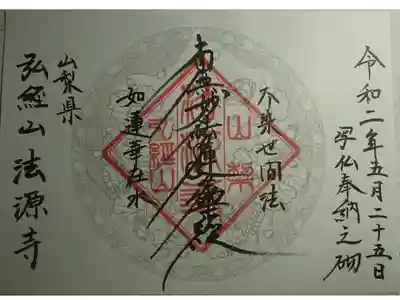 令和二年五月二十五日
写仏奉納之砌
不染世間法
南無妙法蓮華経
如蓮華在水
山梨県
弘経山 法源寺